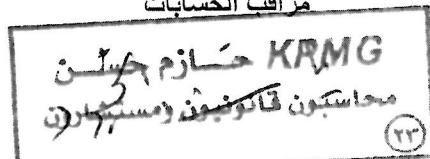 مراقب الحسابات
KPMG حازم حسن
محاسبون قانونيون ومستشارون
(٢٣)